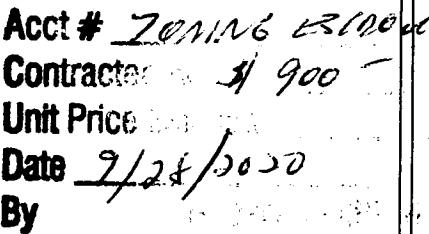 Acct # ZONING ESCROW
Contracted $ 900 -
Unit Price
Date 9/28/2020
By